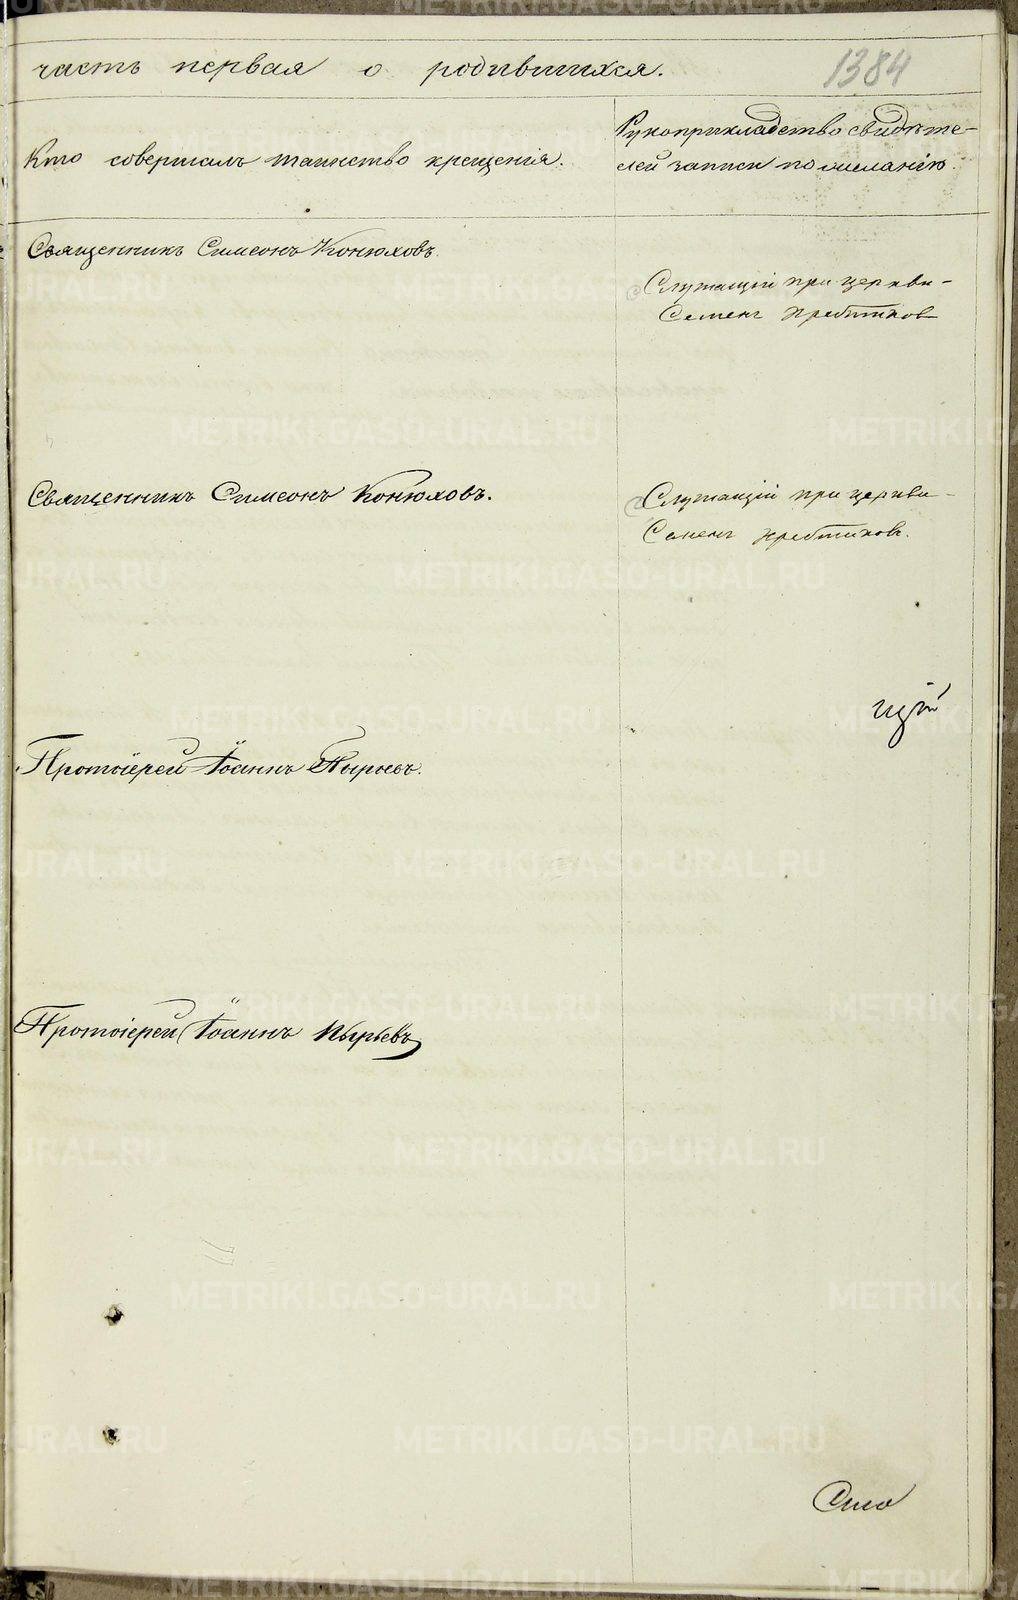 часть первая о родившихся.
1384
Кто совершалъ таинство крещенія.
Рукоприкладство свидѣте-
лей записи по желанію.
Священникъ Симеонъ Конюховъ.
Служащій при церкви-
Семенъ
Священникъ Симеонъ Конюховъ.
Служащій при церкви-
Семенъ
Протоіерей Іоаннъ Пырьевъ.
Протоіерей Іоаннъ Пырьевъ
METRIKI.GASO-URAL.RU